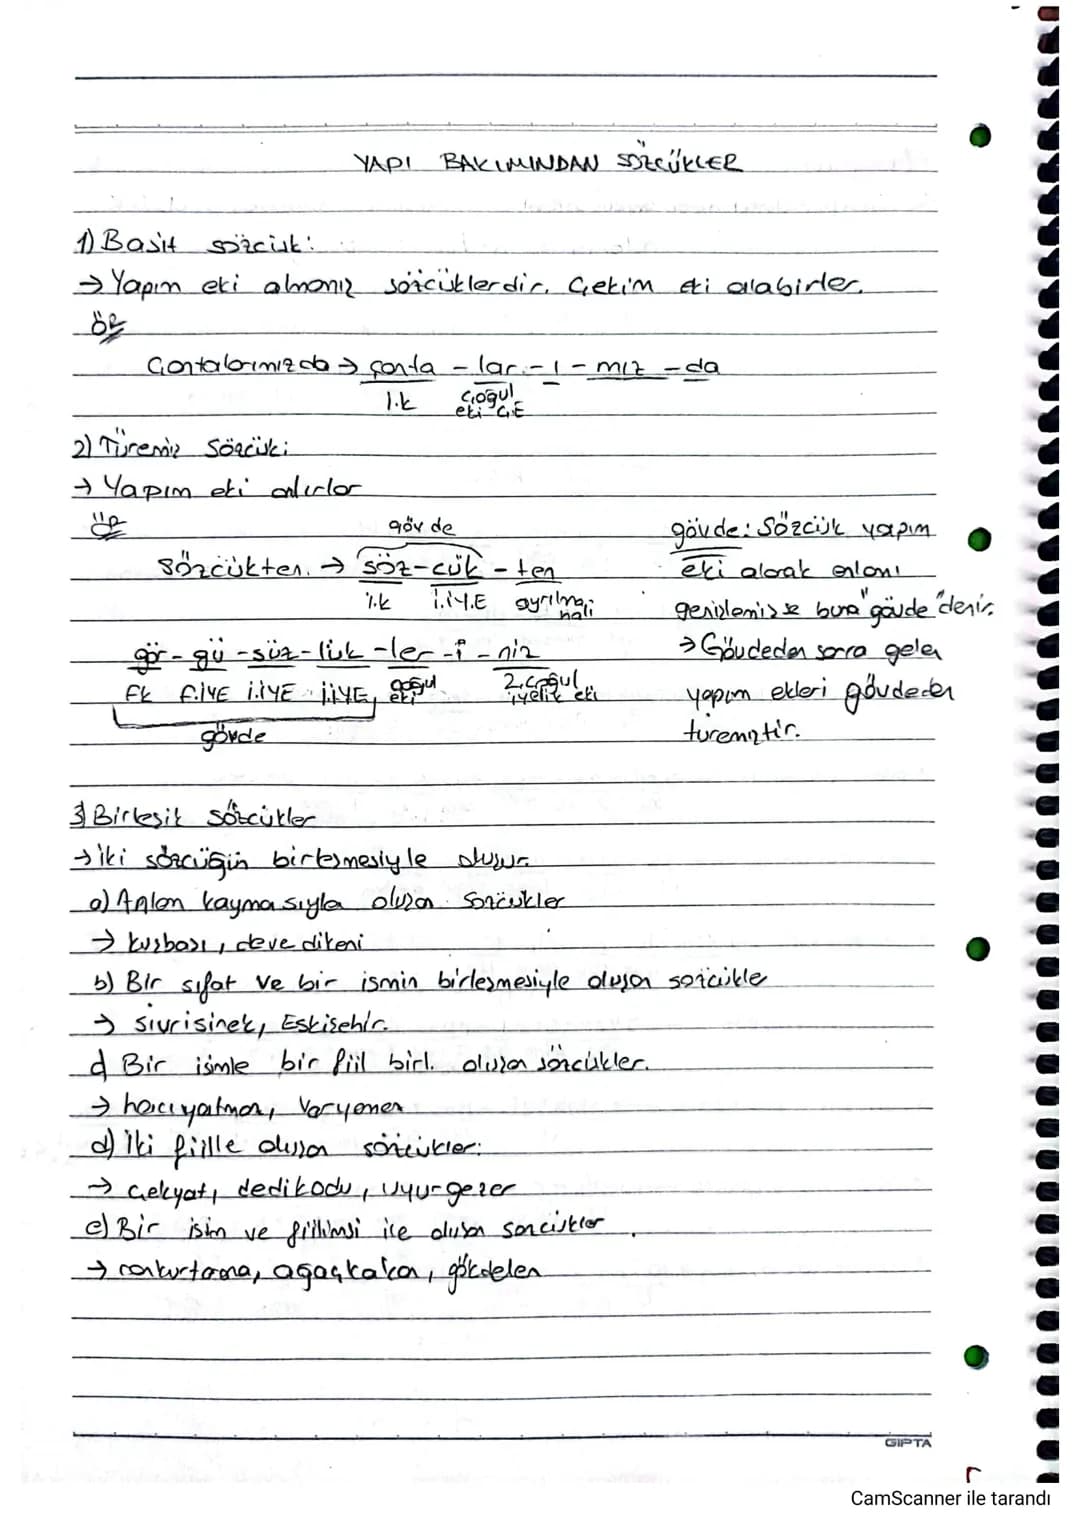 YAPI BAKIMINDAN SÖZCÜKLER
1) Basit sözcük:
→ Yapım eki almamış sözcüklerdir. Çekim eki alabirler.
ÖR
Çantalarımızda → çanta - lar - ı - mız - da
İ.k çoğul
eki Ç.E
2) Türemiş Sözcük:
→ Yapım eki alırlar
ÖR
gövde
Sözcükten → söz-cük - ten
İ.k İ.İ.Y.E ayrılma
hali
gör - gü - süz - lük - ler - i - niz
Fk F.İYE İ.İYE İ.İYE çoğul 2.çoğul
eki iyelik eki
gövde
gövde: Sözcük yapım
eki alarak anlamı
genişlemişse buna "gövde" denir.
→ Gövdeden sonra gelen
yapım ekleri gövdeden
türemiştir.
3) Birleşik sözcükler
→ iki sözcüğün birleşmesiyle oluşur.
a) Anlam kaymasıyla oluşan sözcükler
→ kuşbaşı, deve dikeni
b) Bir sıfat ve bir ismin birleşmesiyle oluşan sözcükle
→ sivrisinek, Eskişehir.
c) Bir isimle bir fiil birl. oluşan sözcükler.
→ hacıyatmaz, Varyemez
d) İki fiille oluşan sözcükler:
→ Çekyat, dedikodu, uyurgezer
e) Bir isim ve fiilimsi ile oluşan sözcükler
→ cankurtaran, ağaçkakan, gökdelen
GIPTA
CamScanner ile tarandı